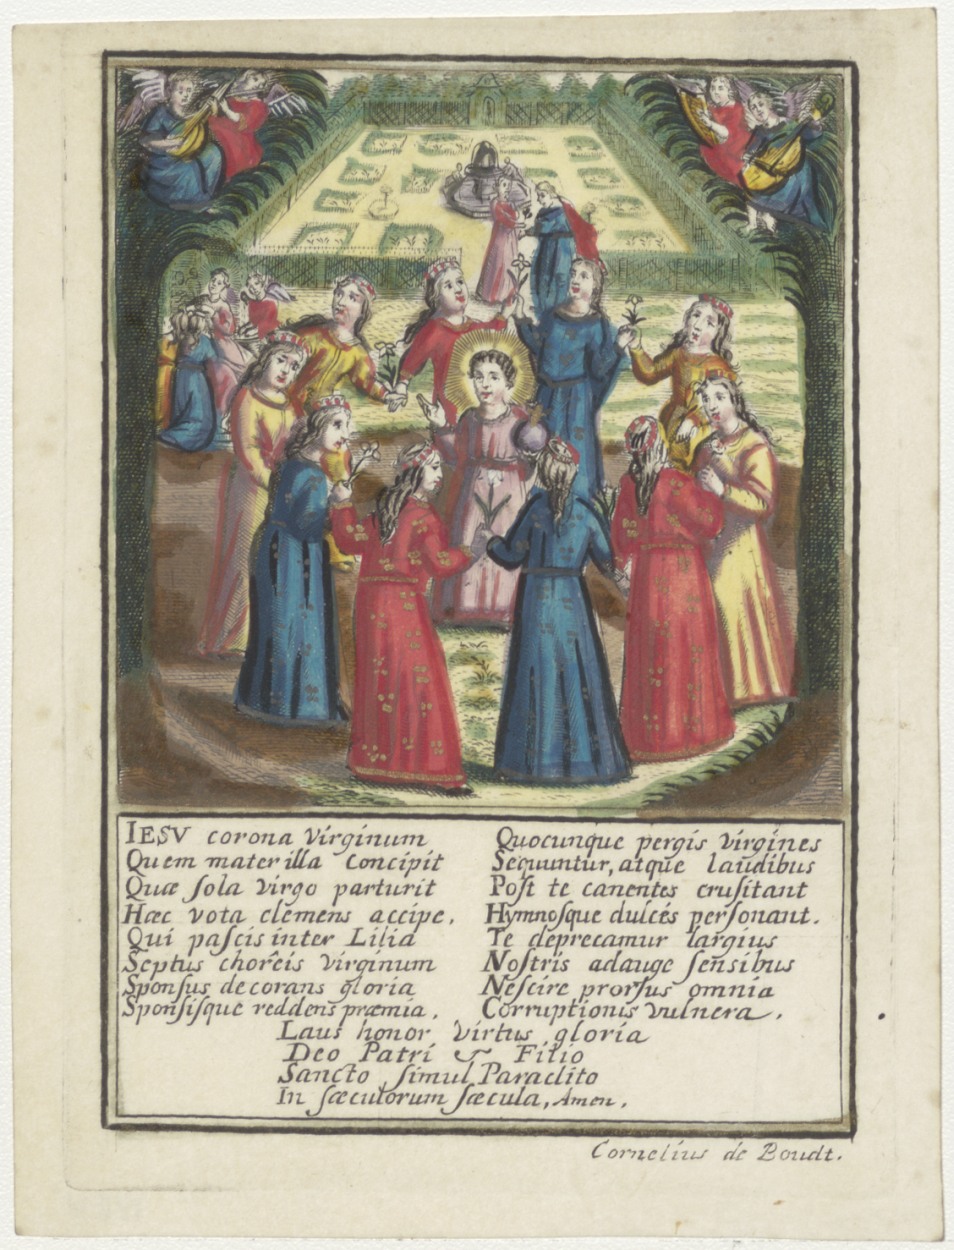 IESV corona Virginum
Quem mater illa Concipit
Quæ ſola Virgo parturit
Hæc vota clemens accipe.
Qui paſcis inter Lilia
Septus chorêis virginum
Sponſus decorans gloria
Sponſisque reddens præmia.
Quocunque pergis virgines
Sequuntur, atque laudibus
Poſt te canentes cruſitant
Hymnoſque dulces perſonant.
Te deprecamur largius
Noſtris adauge ſenſibus
Neſcire prorſus omnia
Corruptionis vulnera.
Laus honor Virtus gloria
Deo Patri & Filio
Sancto ſimul Paraclito
In ſæculorum ſæcula, Amen.
Cornelius de Boudt.